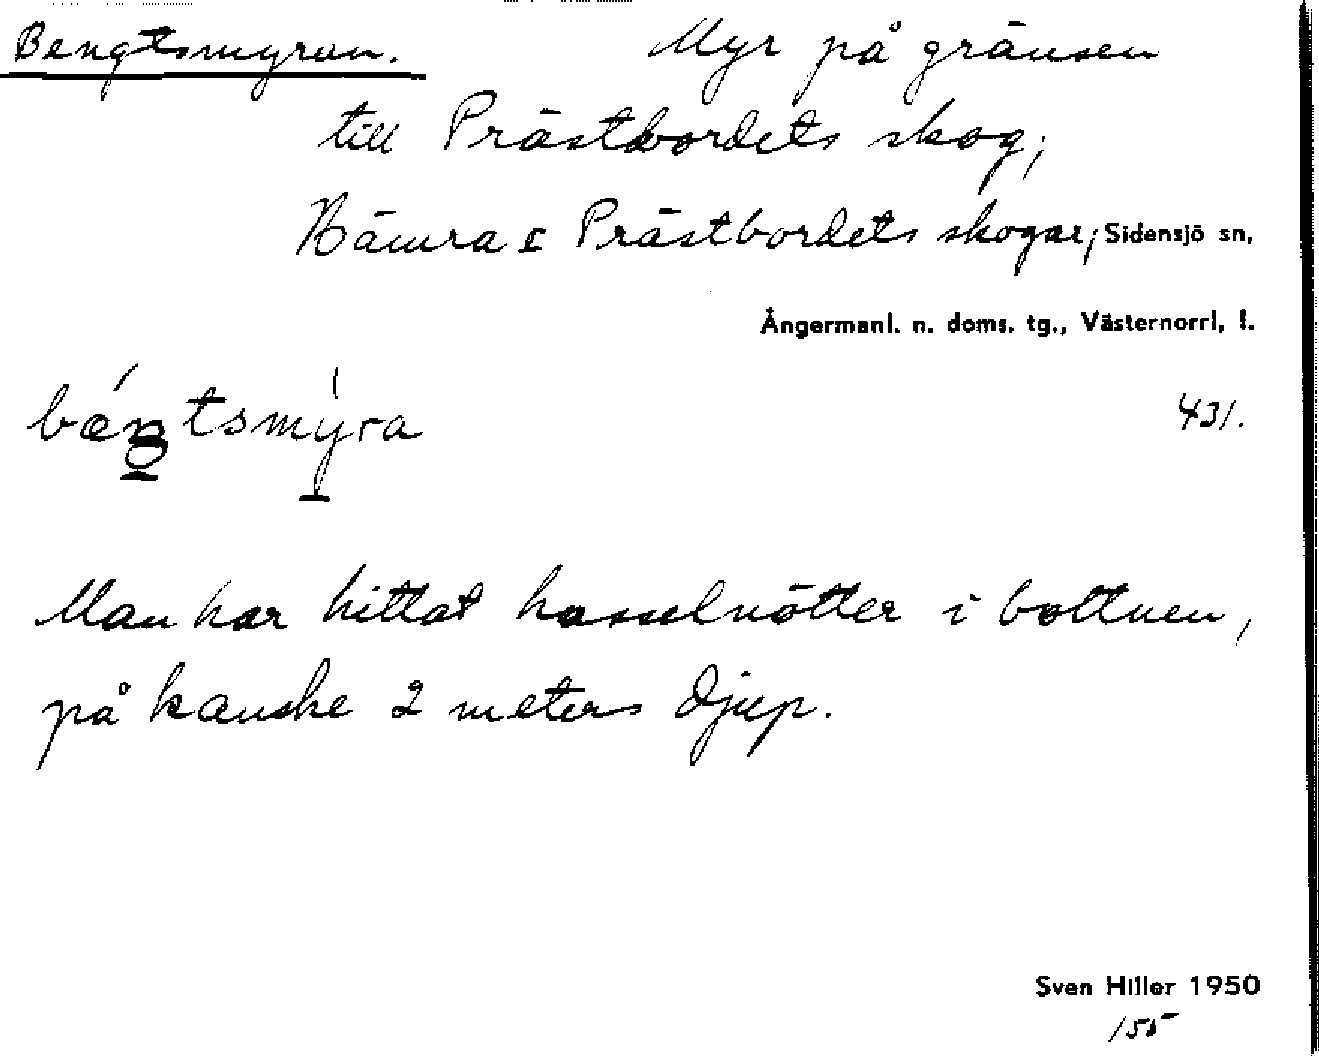 Bengtsmyran. Myr på gränsen
till Prästbordets skog;
Hämra o Prästbordets skogar; Sidensjö sn,
Ångermanl. n. doms. tg., Västernorrl. l.
431.
Man har hittat hasselnötter i bottnen,
på kanske 2 meters djup.
Sven Hiller 1950
155